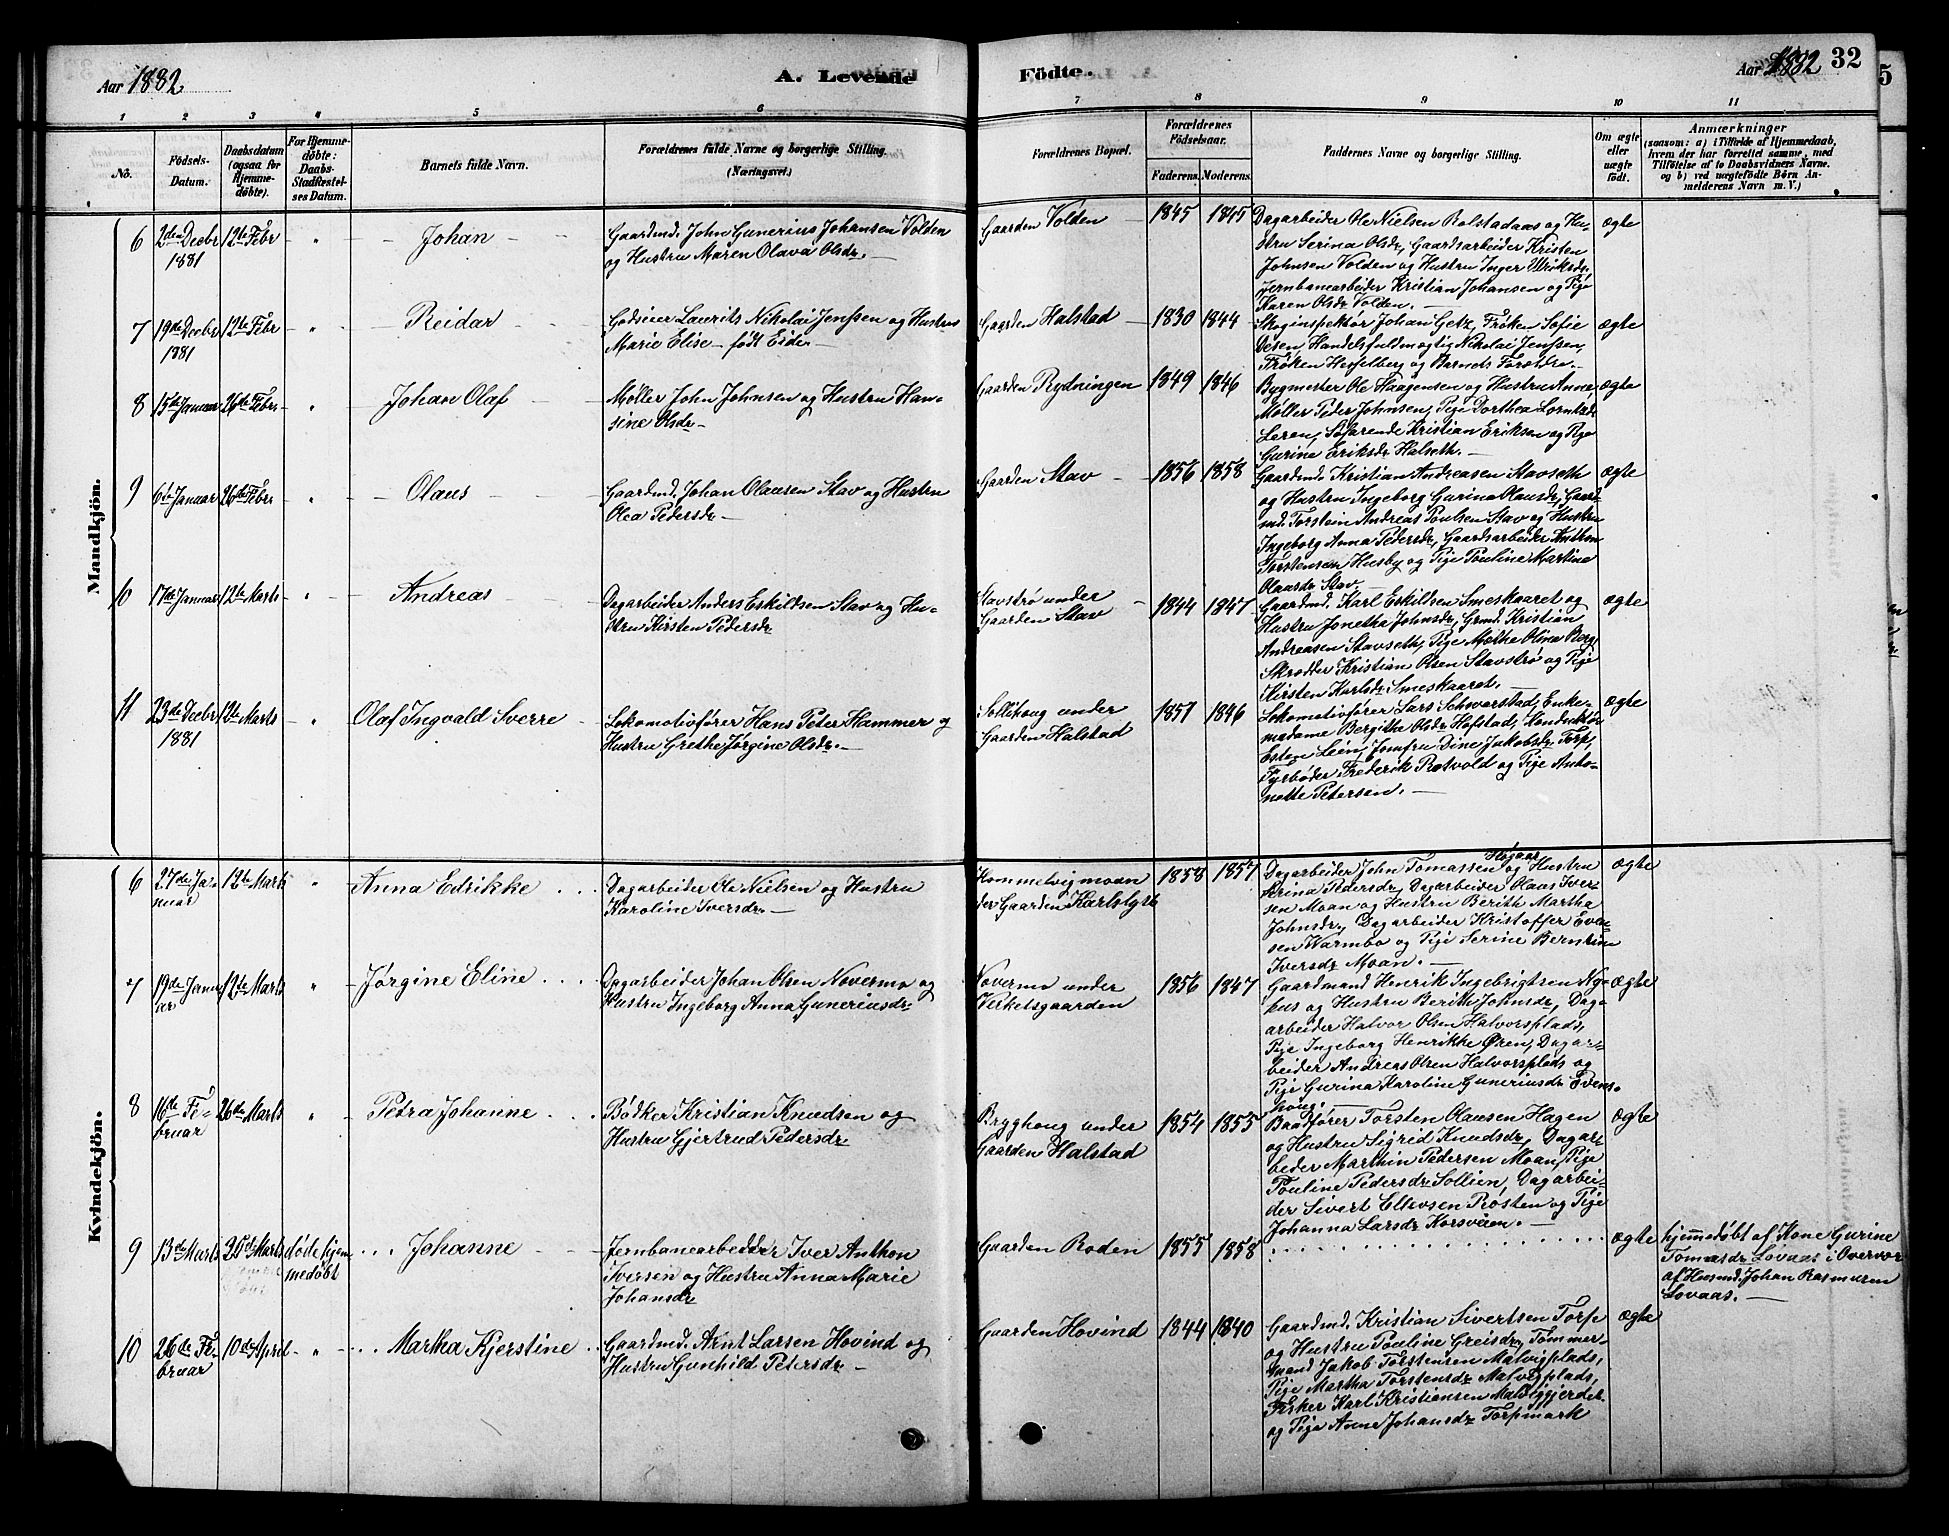 Aar 1882
A. Levende
Födte.
Aar 1882
32
5
1 2 3 4 5 6 7 8 9 10 11
No.
Födsels-
Datum.
Daabsdatum
(ogsaa for
Hjemme-
döbte).
For Hjemme-
döbte:
Daabs-
Stadfæstel-
ses Datum.
Barnets fulde Navn.
Forældrenes fulde Navne og borgerlige Stilling.
(Næringsvei.)
Forældrenes Bopæl.
Forældrenes
Födselsaar.
Faderens. Moderens.
Faddernes Navne og borgerlige Stilling.
Om ægte
eller
uægte
födt.
Anmærkninger
(saasom: a) i Tilfælde af Hjemmedaab,
hvem der har forrettet samme, med
Tilföielse af to Daabsvidners Navne.
og b) ved uægtefödte Börn An-
melderens Navn m. V.)
Mandkjön.
6
2den Decbr
1881
12te Febr
"
Johan
Gaardmd. John Gunerius Johansen Volden
og Hustru Maren Olava Olsdr.
Gaarden Volden
1845
1845
Dagarbeider Ole Nielsen Bolstadaas og Hu-
stru Serina Olsdr, Gaardsarbeider Kristen
Johnsen Volden og Hustru Inger Ulriksdr.
Jernbanearbeider Kristian Johansen og Pige
Karen Olsdr Volden.
ægte
7
19de Decbr
1881
12te Febr
"
Reidar
Godseier Laurits Nikolai Jenssen og Hustru
Marie Elise født Eide
Gaarden Halstad
1830
1844
Skoginspektør Johan Getz, Frøken Sofie
Disen Handelsfuldmægtig Nikolai Jenssen,
Frøken Hesselberg og Barnets Forældre.
ægte
8
15de Januar
26te Febr.
"
Johan Olaf
Møller John Johnsen og Hustru Han-
sine Olsdr
Gaarden Rydningen
1849
1846
Bygmester Ole Haagensen og Hustru Anne,
Møller Peder Johnsen, Pige Dorthea
Leren, Søfarende Kristian Eriksen og Pige
Gurine Eriksdr Halseth.
ægte
9
6te Januar
26te Febr.
"
Olaus
Gaardmd. Johan Olausen Stav og Hustru
Olea Pedersdr
Gaarden Stav
1856
1858
Gaardmd. Kristian Andreasen Stavseth
og Hustru Ingeborg Gurina Olausdr, Gaard-
md. Torstein Andreas Poulsen Stav og Hustru
Ingeborg Anna Pedersdr, Gaardsarbeider Anthon
Torstensen Husby og Pige Pouline Martina
Olausdr Stav
ægte
10
17de Januar
12te Marts
"
Andreas
Dagarbeider Anders Eskildsen Stav og Hu-
stru Kirsten Pedersdr
Stavstrø under
Gaarden Stav
1844
1847
Gaardmd. Karl Eskildsen Smeskaaret og
Hustru Jonetha Johnsdr, Grmd. Kristian
Andreasen Stavseth, Pige Mæthe Olina Berg,
Skrædder Kristian Olsen Stavstrø og Pige
Kirsten Karlsdr Smeskaaret.
ægte
11
23de Decbr
1881
12te Marts
"
Olaf Ingvald Sverre
Lokomotivfører Hans Peter Hammer og
Hustru Grethe Jørgine Olsdr.
Sollihoug under
Gaarden Halstad
1851
1846
Lokomotivfører Lars Schvorstad, Enke-
madame Bergithe Olsdr Hofstad, Konduktør
Esten Leín, Jomfru Dine Jakobsdr Torp,
Fyrbøder Frederik Rotvold og Pige Anto-
nette Petersen.
ægte
Kvindekjön.
6
27de Ja-
nuar
12te Marts
"
Anna Edrikke
Dagarbeider Ole Nielsen og Hustru
Karoline Iversdr.
Hommelvigmoan
der Gaarden Karlslyst
1858
1857
Dagarbeider John Tomassen Hustru
Serina Pedersdr, Dagarbeider Claus Iver-
sen Moan og Hustru Berith Martha
Johnsdr, Dagarbeider Kristoffer Even-
sen Warmbo og Pige Serine Berntine
Iversdr Moan.
ægte
7
19de Janu-
ar
12te Marts
"
Jørgine Eline
Dagarbeider Johan Olsen Nævermo og
Hustru Ingeborg Anna Guneriusdr
Nævermo under
Veikelsgaarden
1856
1847
Gaardmand Henrik Ingebrigtsen Ny-
hus og Hustru Berith Johnsdr, Dag-
arbeider Halvor Olsen Halvorsplads,
Pige Ingeborg Henrikke Øren, Dagar-
beider Andreas Olsen Halvorsplads og
Pige Gurina Karoline Guneriusdr Svens-
houg.
ægte
8
16te Fe-
bruar
26de Marts
"
Petra Johanne
Bødker Kristian Knudsen og
Hustru Gjertrud Pedersdr
Brygghoug under
Gaarden Halstad
1854
1855
Baadfører Torsten Olausen Hagen
og Hustru Sigrid Knudsdr, Dagar-
beder Marthin Pedersen Moan, Pige
Pouline Pedersdr Sollien, Dagarbei-
der Sivert Ellevsen Prøsten og Pige
Johanna Larsdr Korsveien.
ægte
9
13de Marts
25de Marts
døde hjem
medøbt
Johanne
Jernbanearbeider Iver Anthon
Iversen og Hustru Anna Marie
Johansdr
Gaarden Roden
1855
1858
ægte
hjemmedøbt af Kone Gurine
Tomasdr Lovaas i Overvær
af Husmd. Johan Rasmusen
Lovaas.
10
26te Fe-
bruar
10de April
"
Martha Kjerstine
Gaardmd. Arnt Larsen Hovind og
Hustru Gunhild Petersdr
Gaarden Hovind
1844
1840
Gaardmd. Kristian Sivertsen Torp
og Hustru Pouline Greisdr, Tømmer-
mand Jakob Torstensen Malvigplads,
Pige Martha Torstensdr Malvigplads,
Fisker Karl Kristiansen Malviggjerdet
og Pige Anne Johansdr Torpmark